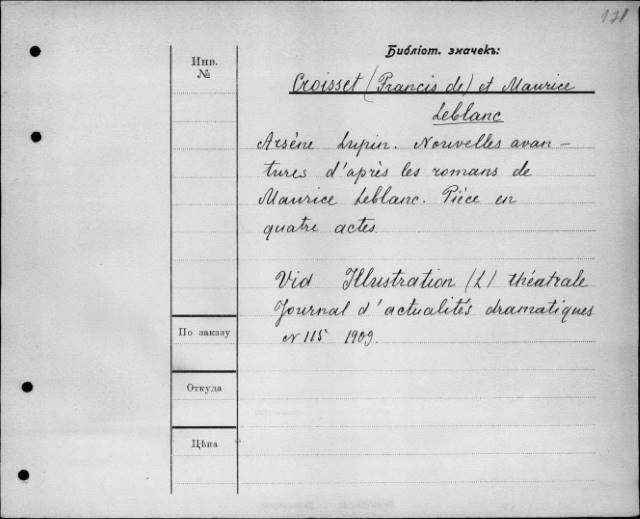 131
Библіот. значекъ:
Инв.
№
Croisset (Francis de) et Maurice
Leblanc
Arsène Lupin. Nouvelles avan-
tures d'après les romans de
Maurice Leblanc. Pièce en
quatre actes
Vid Illustration (L) théatrale
Journal d'actualités dramatiques
N 115 1909.
По заказу
Откуда
Цѣна